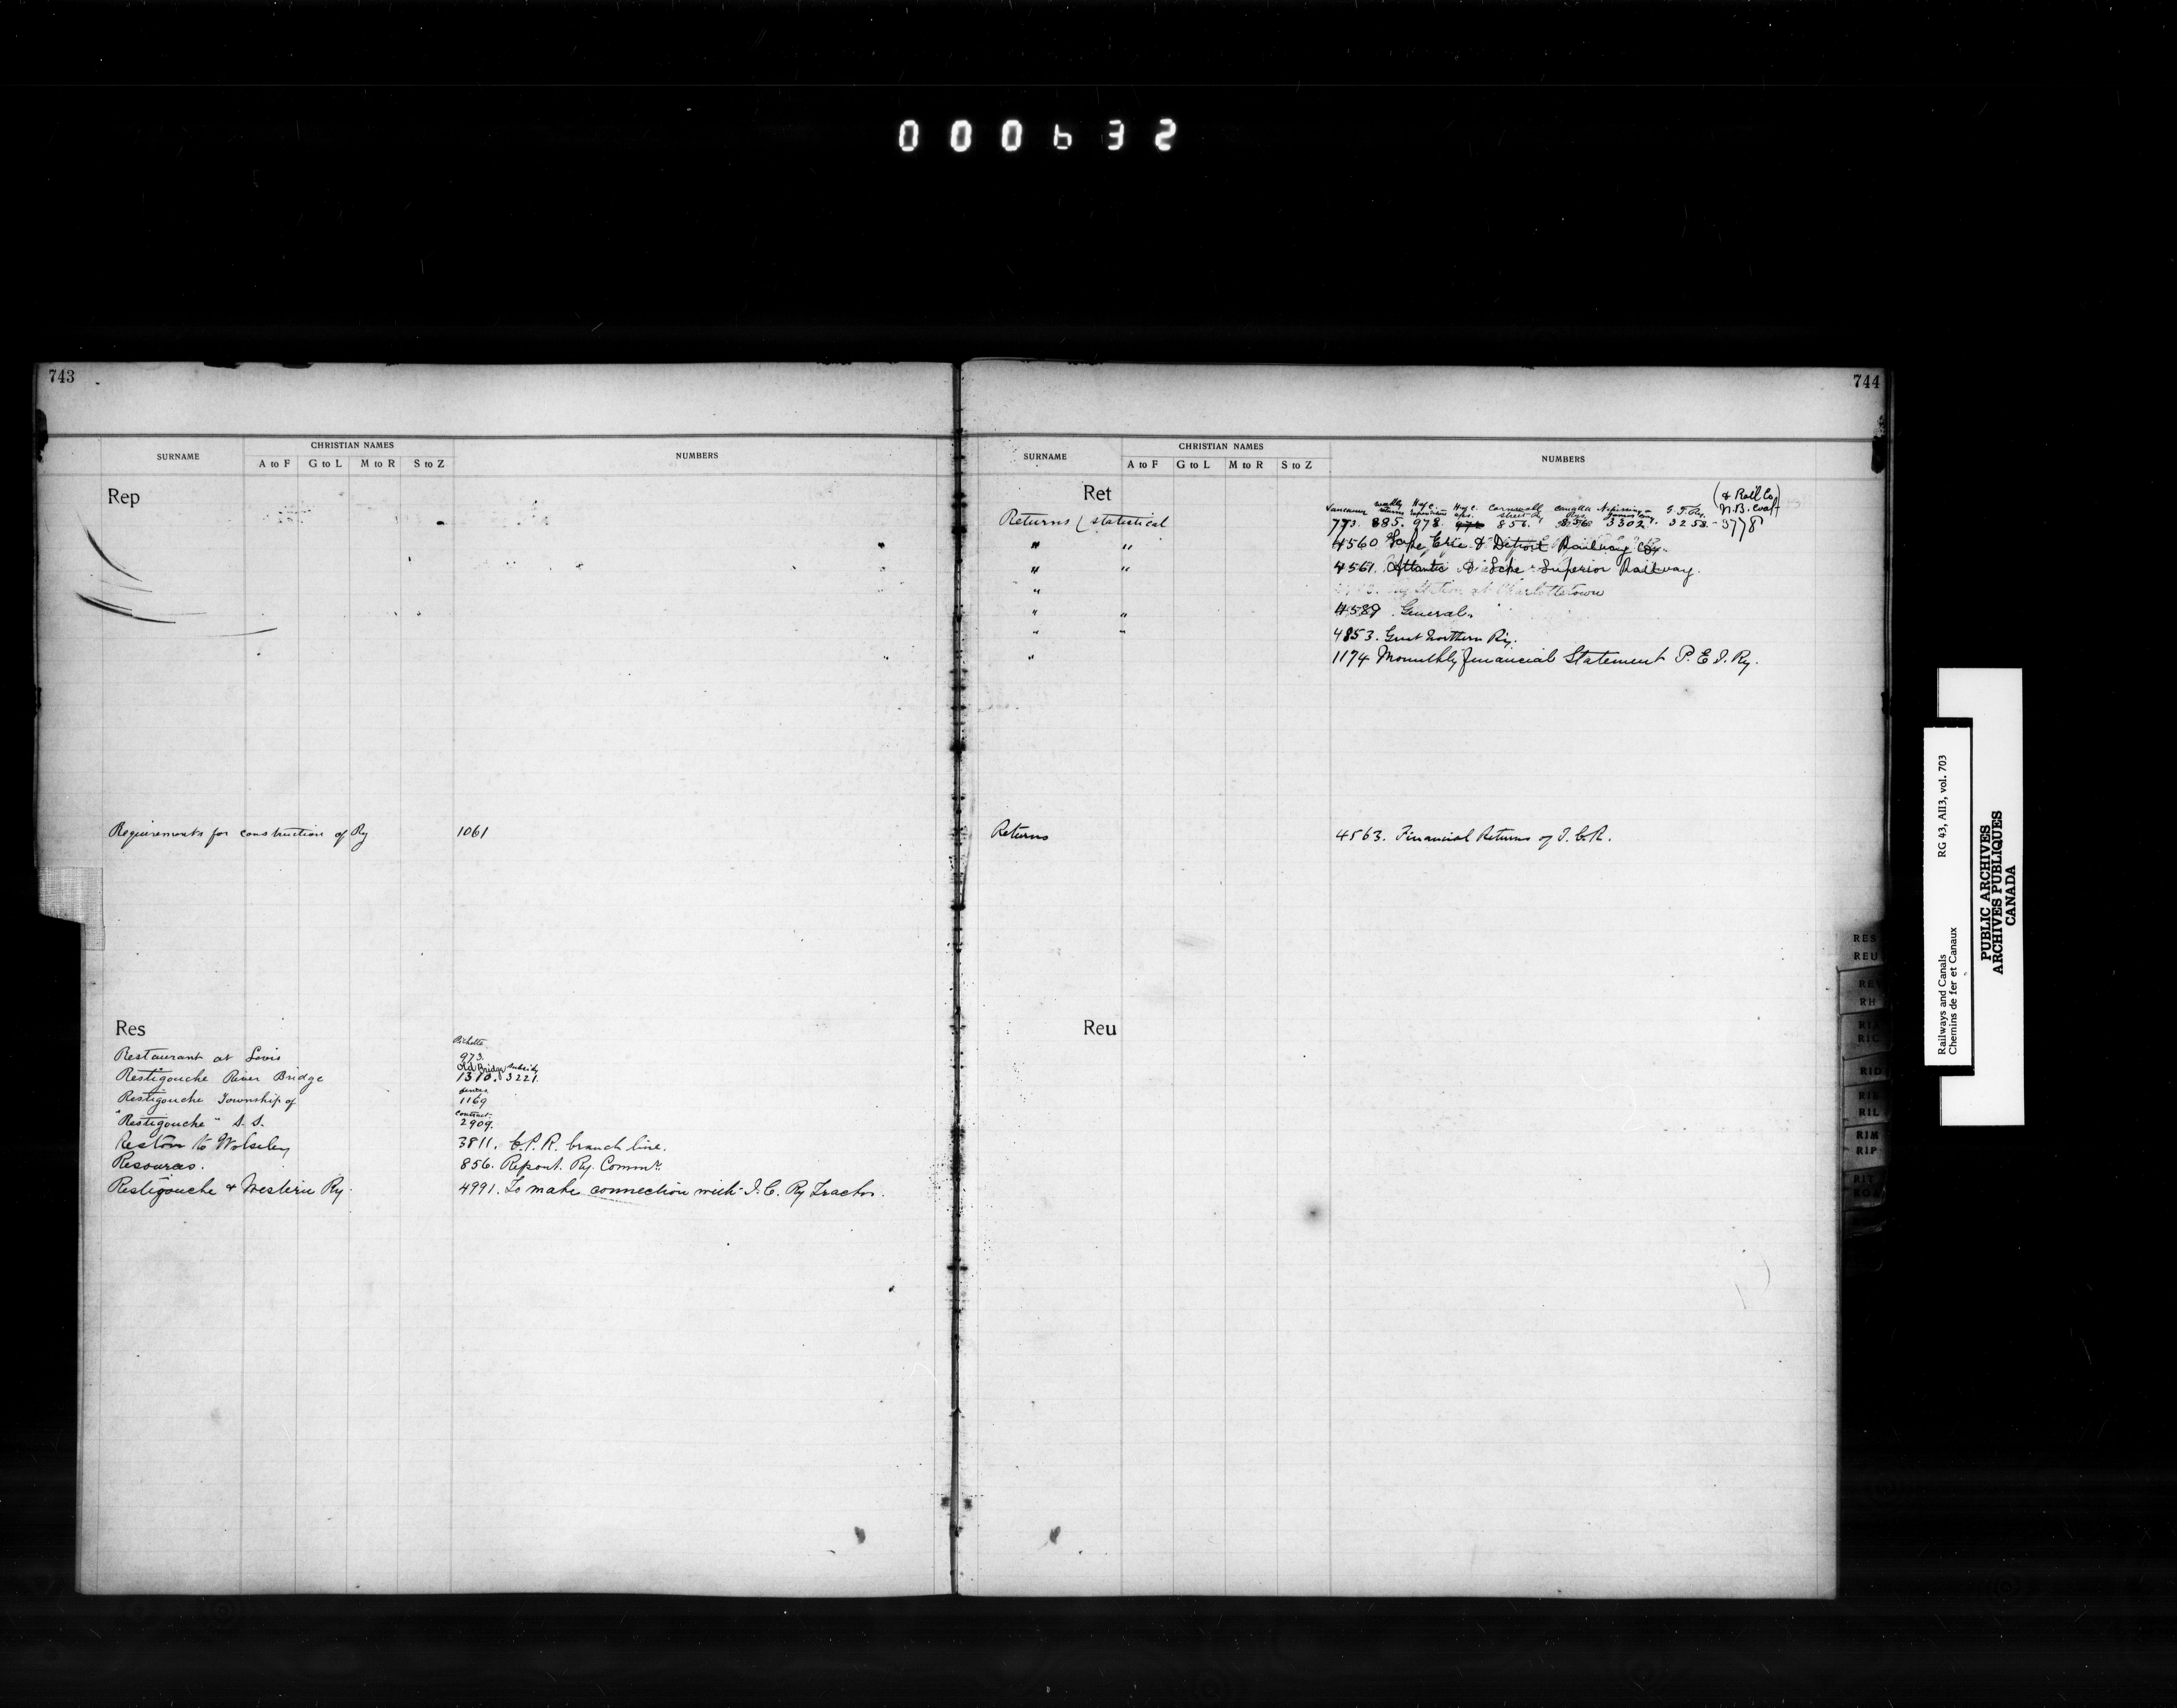 000632
743
SURNAME CHRISTIAN NAMES NUMBERS
A to F G to L M to R S to Z
Rep
Requirements for construction of Ry 1061
Res
Richotte
Restaurant at Levis 973.
Old Bridge Subsidy
Restigouche River Bridge 1310. 3221.
fences
Restigouche Township of 1169
Contract.
"Restigouche" S.S. 2909.
Reston to Wolseley 3811. C.P.R. branch line.
Resources. 856. Report. Ry. Commr.
Restigouche & Western Ry. 4991. To make connection with I.C. Ry Tracks.
744
SURNAME CHRISTIAN NAMES NUMBERS
A to F G to L M to R S to Z
Ret
(& Rail Co)
Vancouver weekly returns H of C. H of C. Cornwall street Ry Nipissing G.T. Ry. N.B. Coal
Returns (statistical 773. 885. 978. 856. 856 3302. 3258 - 3778
" " 4560 Lake Erie & Detroit Railway Co.
" " 4561. Atlantic & Lake Superior Railway.
" Station at Charlottetown
" " 4589 General.
" " 4853. Great Northern Ry.
" 1174 Mounthly financial Statement P.E.I. Ry.
Returns 4563. Financial Returns of I.C.R.
Reu
RES
REU
REV
RH
RIA
RIC
RID
RIE
RIL
RIM
RIP
RIT
ROA
Railways and Canals RG 43, AII3, vol. 703
Chemins de fer et Canaux
PUBLIC ARCHIVES
ARCHIVES PUBLIQUES
CANADA